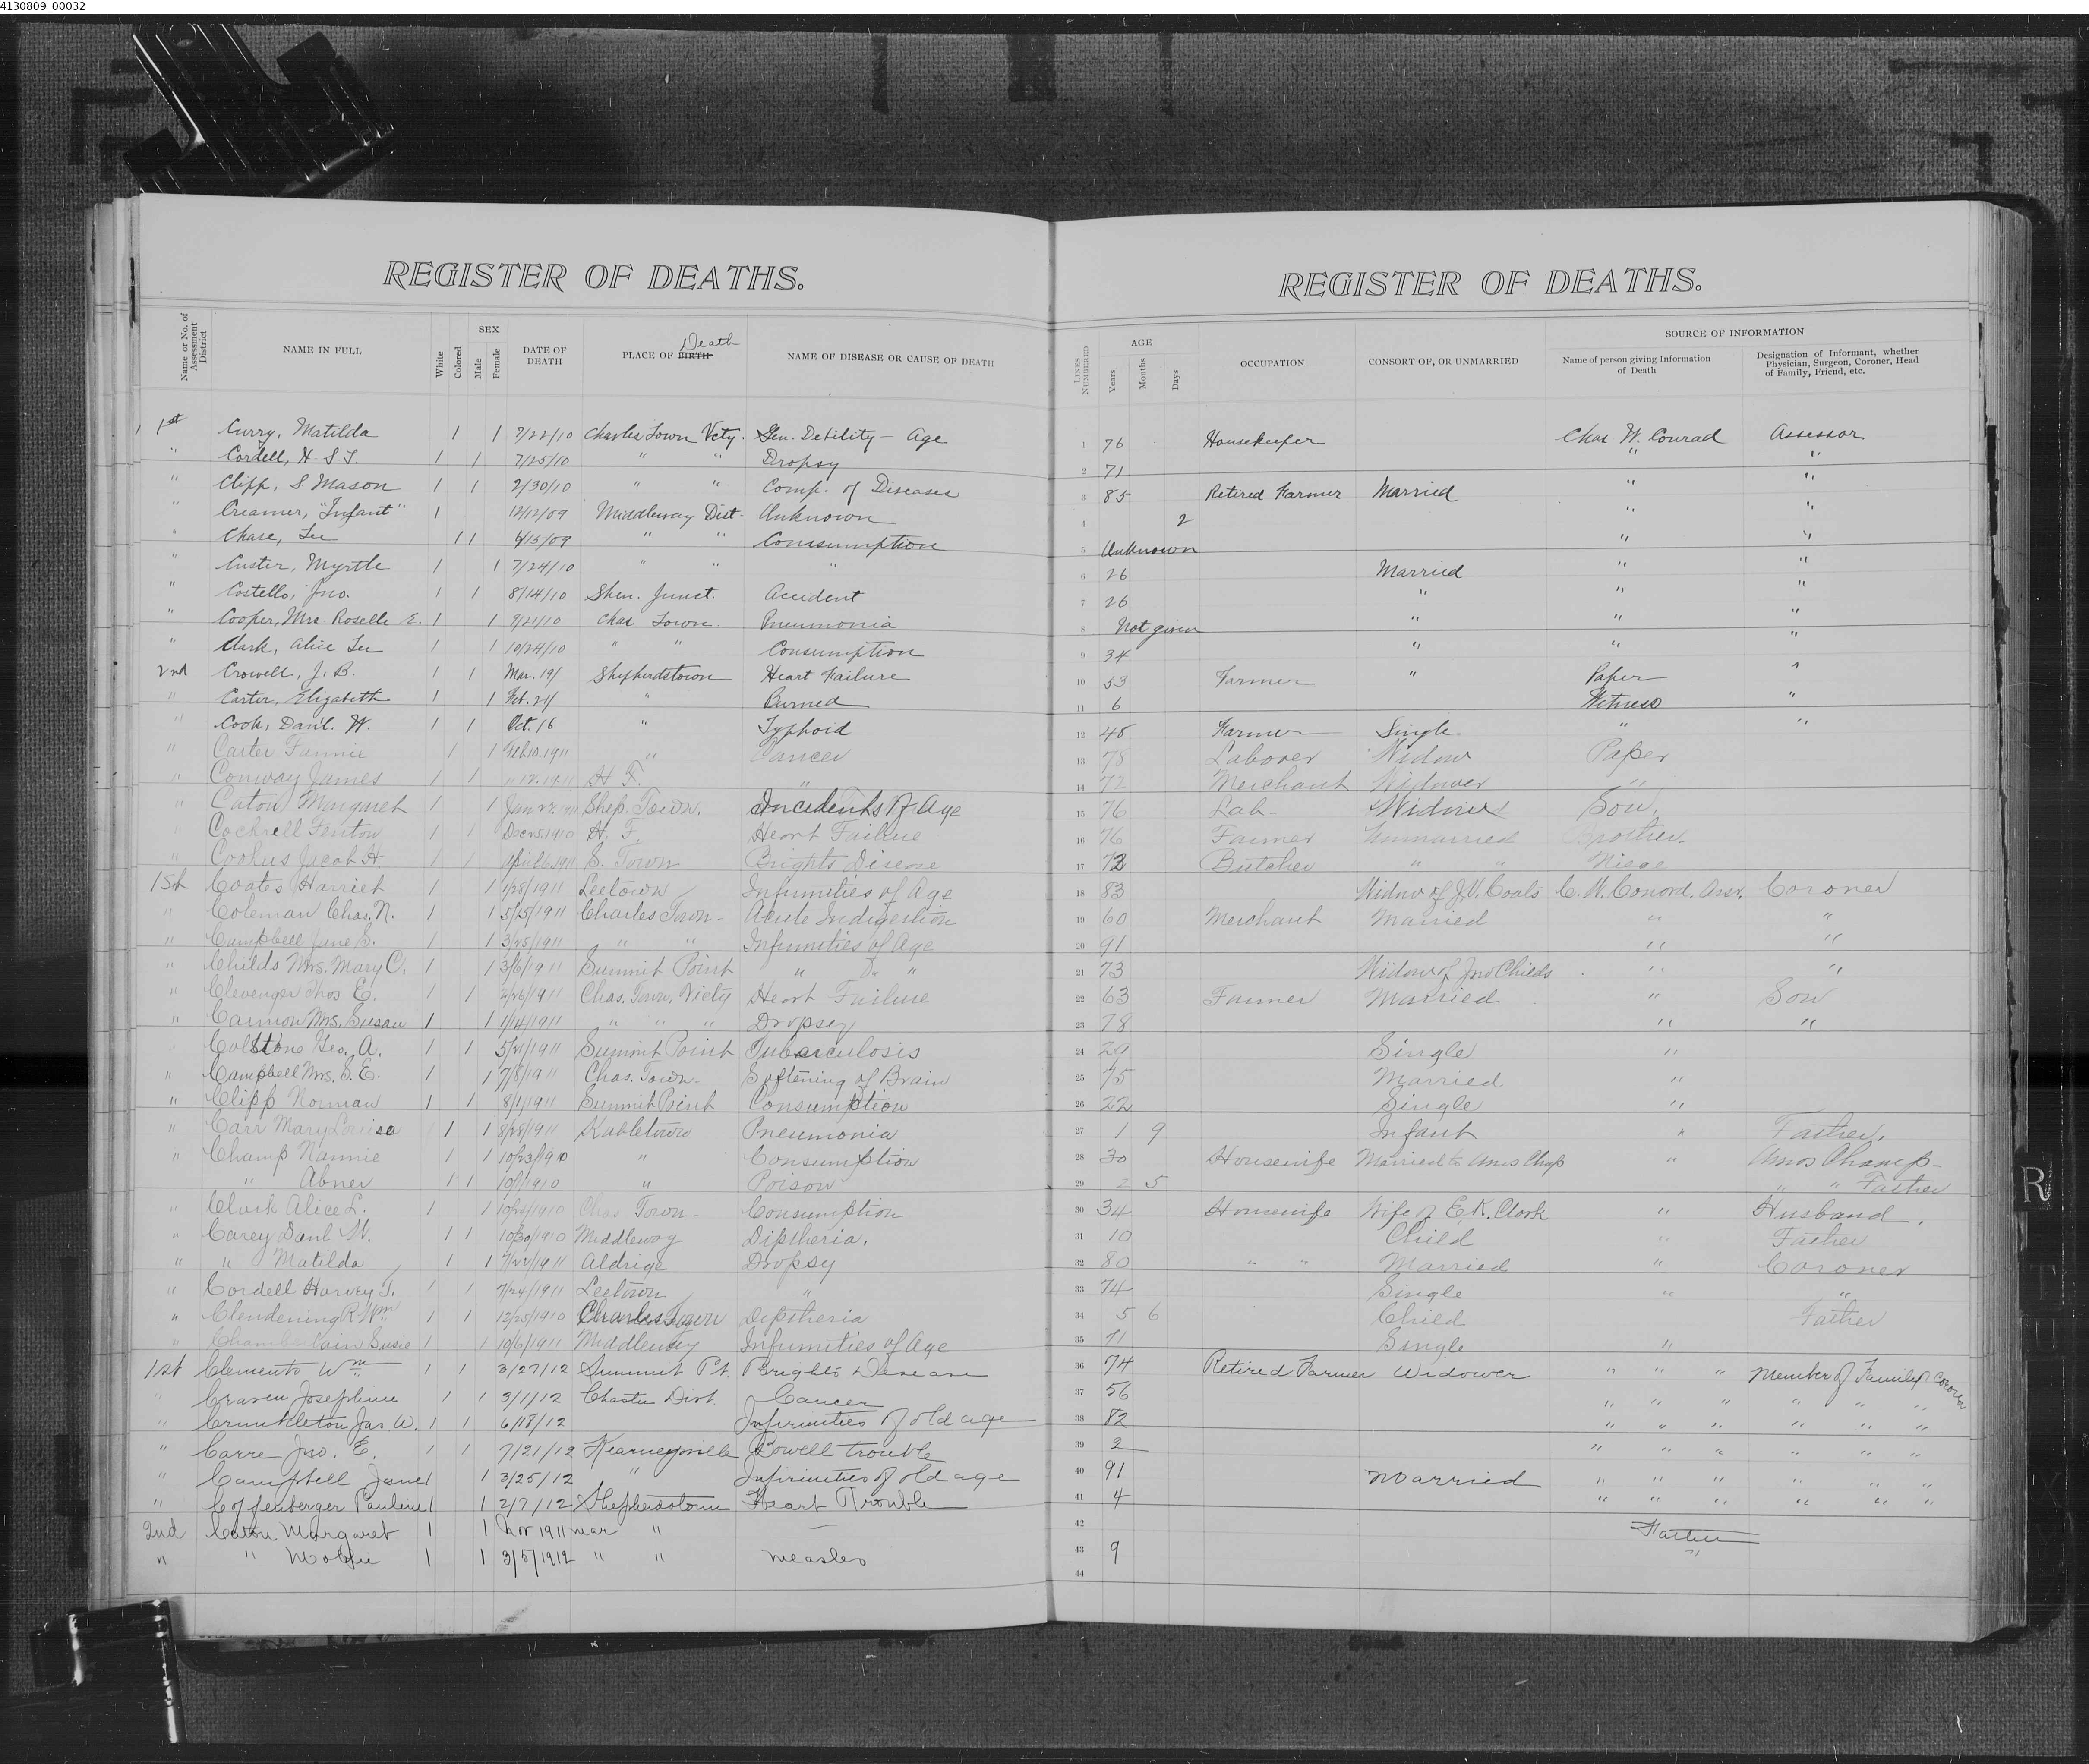 4130809_00032
REGISTER OF DEATHS.
REGISTER OF DEATHS.
Name or No. of Assessment District
NAME IN FULL
White
Colored
SEX
Male
Female
DATE OF DEATH
Death
PLACE OF BIRTH
NAME OF DISEASE OR CAUSE OF DEATH
LINES NUMBERED
AGE
Years
Months
Days
OCCUPATION
CONSORT OF, OR UNMARRIED
SOURCE OF INFORMATION
Name of person giving Information of Death
Designation of Informant, whether Physician, Surgeon, Coroner, Head of Family, Friend, etc.
1st Curry, Matilda 1 1 7/22/10 Charles Town Vcty. Gen. Debility - Age 1 76 Housekeeper Chas W. Conrad Assessor
" Cordell, H. S. T. 1 1 7/25/10 " " Dropsy 2 71 " "
" Clipp, S. Mason 1 1 2/30/10 " " Comp. of Diseases 3 85 Retired Farmer Married " "
" Creamer, "Infant" 1 12/12/09 Middleway Dist. Unknown 4 2 " "
" Chase, Lee 1 1 4/15/09 " " Consumption 5 Unknown " "
" Custer, Myrtle 1 1 7/24/10 " " " 6 26 Married " "
" Costello, Jno. 1 1 8/14/10 Shen. Junct. Accident 7 26 " " "
" Cooper, Mrs Roselle E. 1 1 9/21/10 Chas Town. Pneumonia 8 Not given " " "
" Clark, Alice Lee 1 1 10/24/10 " " Consumption 9 34 " " "
2nd Crowell, J. B. 1 1 Mar. 19/ Shepherdstown Heart Failure 10 53 Farmer " Paper "
" Carter, Elizabeth 1 1 Feb. 24 " Burned 11 6 Witness "
" Cook, Danl. W. 1 1 Oct. 16 " Typhoid 12 48 Farmer Single " "
" Carter Fannie 1 1 Feb. 10. 1911 " Cancer 13 78 Laborer Widow Paper
" Conway James 1 1 " 12. 1911 H F. " 14 72 Merchant Widower "
" Caton Margaret 1 1 Jan 22. 1911 Shep. Town. Incidents of Age 15 76 Lab- Widow Son.
" Cockrell Fenton 1 1 Dec 25. 1910 H. F. Heart Failure 16 76 Farmer Unmarried Brother.
" Cookus Jacob H. 1 1 April 6. 1911 S. Town Brights Disease 17 72 Butcher " " Niece
1st Coates Harriet 1 1 1/28/1911 Leetown Infirmities of Age 18 83 Widow of J. V. Coats C. W. Conord. Assr. Coroner
" Coleman Chas. N. 1 1 5/25/1911 Charles Town- Acute Indigestion 19 60 Merchant Married " "
" Campbell Jane S. 1 1 3/25/1911 " " Infirmities of Age 20 91 " "
" Childs Mrs. Mary C. 1 1 3/6/1911 Summit Point " D. " 21 73 Widow of Jno Childs " "
" Clevenger Thos E. 1 1 2/26/1911 Chas. Town. Vicity Heart Failure 22 63 Farmer Married " Son
" Cannon Mrs. Susan 1 1 1/14/1911 " " " Dropsey 23 78 " "
Colstone Geo. A. 1 1 5/21/1911 Summit Point Tubarculosis 24 29 Single "
" Campbell Mrs. S. E. 1 1 7/8/1911 Chas. Town- Softening of Brain 25 75 Married "
" Clipp Norman 1 1 8/1/1911 Summit Point Consumption 26 22 Single "
" Carr Mary Louisa 1 1 8/28/1911 Kabletown Pneumonia 27 1 9 Infant " Father.
" Champ Nannie 1 1 10/23/1910 " Consumption 28 30 Housewife Married to Amos Chap " Amos Champ-
" Abner 1 1 10/1/1910 " Poison 29 2 5 " " Father
" Clark Alice L. 1 1 10/24/1910 Chas Town- Consumption 30 34 Housewife Wife of E. K. Clark " Husband.
" Carey Danl W. 1 1 10/30/1910 Middleway Diptheria. 31 10 Child " Father
" " Matilda 1 1 7/22/1911 Aldrige Dropsy 32 80 " " Married " Coroner
" Cordell Harvey T. 1 1 7/24/1911 Leetown " 33 74 Single " "
" Clendening R. Wm 1 1 12/25/1910 Charles Town Diptheria 34 5 6 Child Father
" Chamberlain Susie 1 10/6/1911 Middleway Infirmities of Age 35 71 Single "
1st Clements Wm 1 1 3/27/12 Summit Pt. Brights Disease 36 74 Retired Farmer Widower " " " Member of Family & Coroner
" Craven Josephine 1 1 3/1/12 Chastn Dist. Cancer 37 56 " " " " " "
" Crumbleton Jas W. 1 1 6/18/12 Infirmities of old age 38 82 " " " " " "
" Carre Jno. E. 1 1 7/21/12 Kearneysville Bowell trouble 39 2 " " " " " "
" Campbell Jane 1 1 3/25/12 " Infirmities of old age 40 91 Married " " " " " "
" Coffenberger Pauline 1 1 2/7/12 Shepherdstown Heart Trouble 41 4 " " " " " "
2nd Caton Margaret 1 1 Nov 1911 near " — 42 Father
" " Mollie 1 1 3/5/1912 " " Measles 43 9 "
44
R